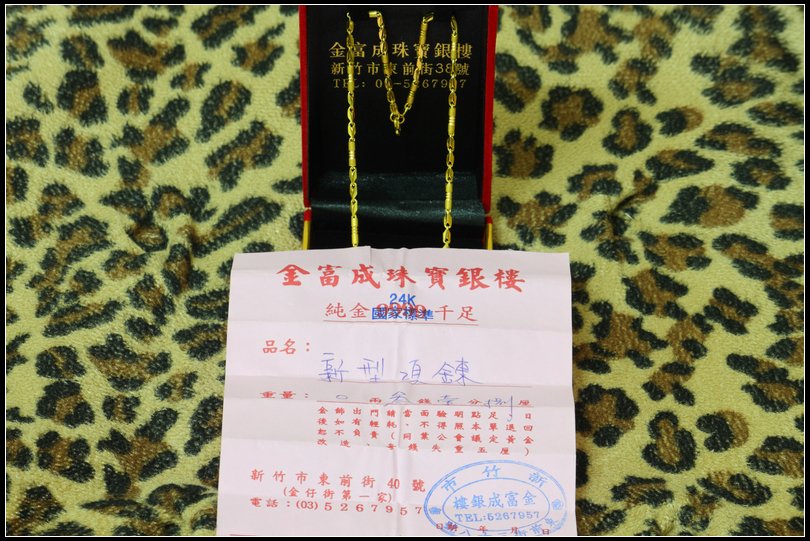 金富成珠寶銀樓
新竹市東前街38號
TEL: 03-5267957
金富成珠寶銀樓
24K
純金9999千足
國家標準
品名：新型項鍊
重量：0兩參錢壹分捌厘
金飾出門請當面驗明點足，日
後如有輕耗、不得照本單退回
恕不負責（同業公會議定黃金
改造、每錢失重五厘）
新竹市東前街40號
(金仔街第一家)
電話：(03)5267957
新竹市
金富成銀樓
TEL:5267957
日期 年 月 日